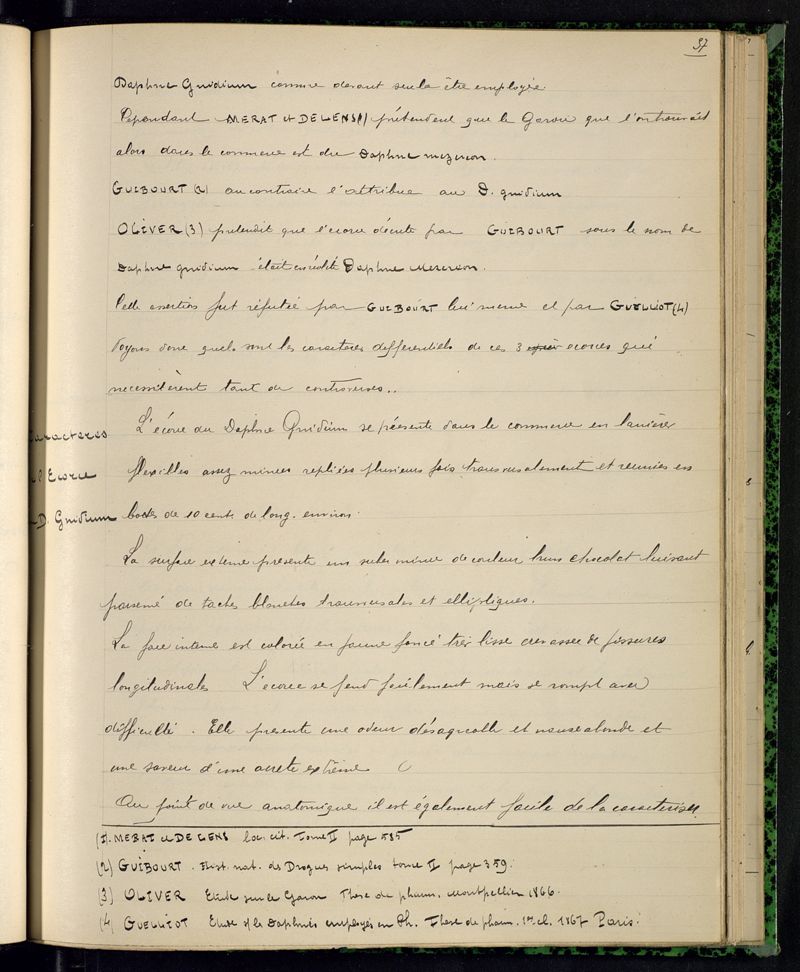 37
Daphne Gnidium comme devant seule être employée.
Cependant MERAT et DELENS(1) prétendent que le Garou que l'on trouvait
alors dans le commerce est du Daphne mezereon.
GUIBOURT (2) au contraire l'attribue au D. gnidium
OLIVER (3) prétendit que l'écorce décrite par GUIBOURT sous le nom de
Daphne gnidium était en réalité Daphne Mezereon.
Cette assertion fut réfutée par GUIBOURT lui même et par GUELLIOT (4)
Voyons donc quels sont les caractères differentiels de ces 3 écorces qui
necessitèrent tant de controverses..
Caracteres
L'écorce du Daphne Gnidium se présente dans le commerce en lanières
l'Ecorce
flexibles assez minces repliées plusieurs fois transversalement et reunies en
D. Gnidium
bottes de 10 cent. de long. environ.
La surface externe presente un suber mince de couleur brun chocolat luisant
parsemé de taches blanches transversales et elliptiques.
La face interne est colorée en jaune foncé très lisse crevassée de fissures
longitudinales L'écorce se fend facilement mais se rompt avec
difficulté. Elle presente une odeur désagreable et nauseabonde et
une saveur d'une acreté extrême
Au point de vue anatomique il est également facile de la caracteriser
(1). MERAT et DE LENS loc. cit. Tome II page 585
(2) GUIBOURT. Hist. nat. des Drogues simples tome II page 359.
(3) OLIVER Etude sur le Garou These de pharm. Montpellier 1866.
(4) GUELLIOT Etude s/ les Daphnés employés en Ph. These de pharm. 1re cl. 1867 Paris.